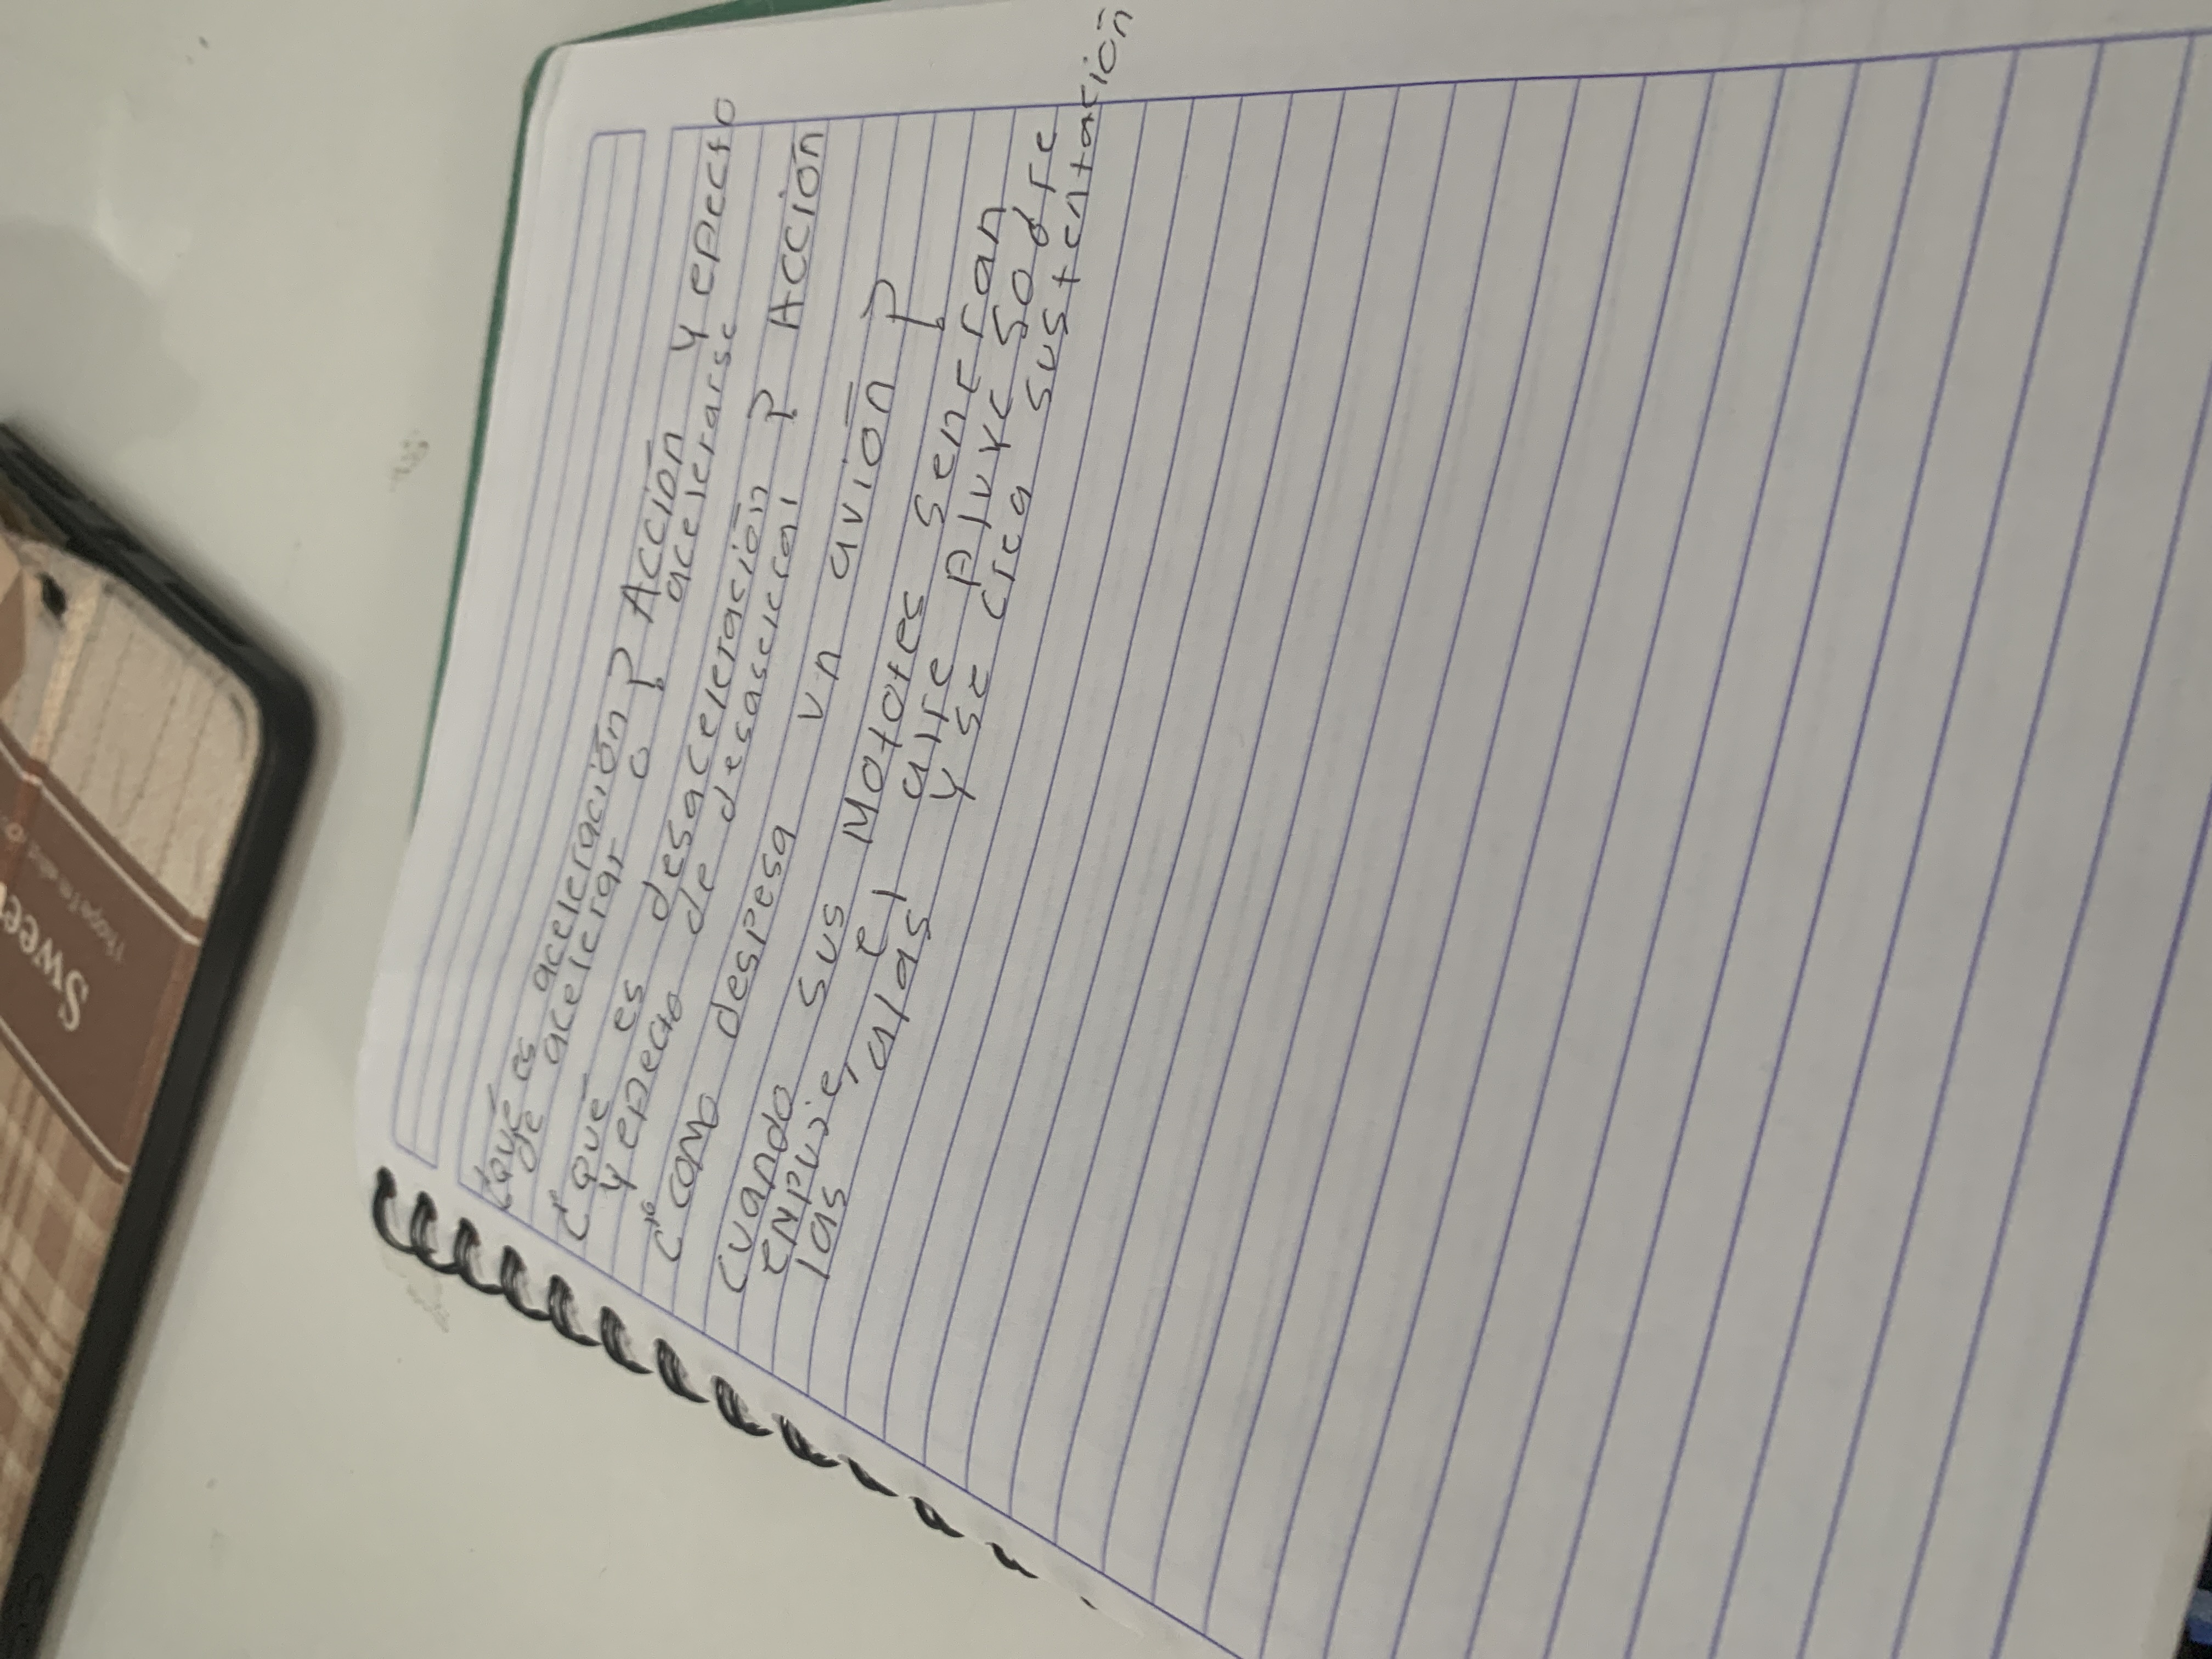 ¿qué es aceleración? Acción y epecto
de acelerar o acelerarse
¿qué es desaceleración? Acción
y epecto de desasceral
¿como despesa un avión?
cuando sus Motores seneran
enpuje, el aire pluye sobre
las alas y se crea sustentación
Swee